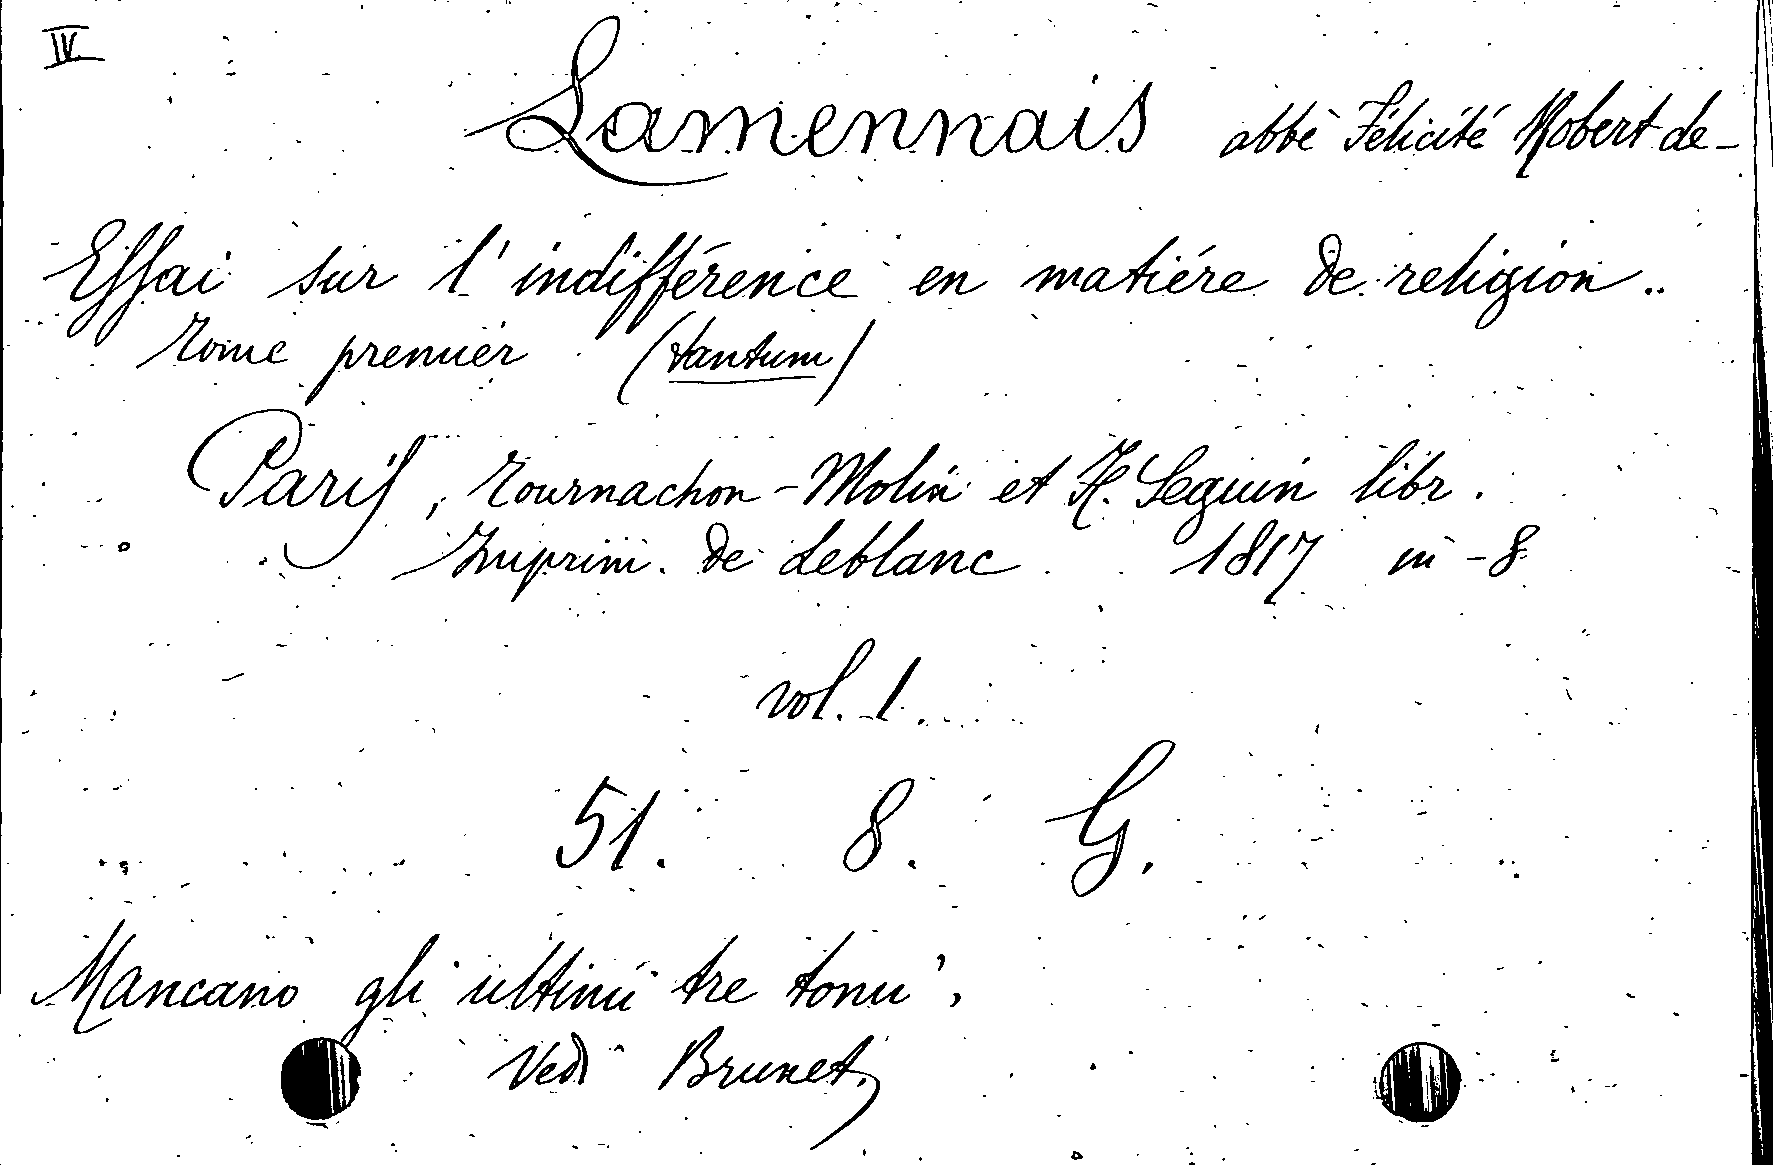 IV
Lamennais abbé Félicité Robert de-
Essai sur l'indifférence en matiére de religion..
Tome premier (tantum)
Paris, Tournachon-Molin et H. Seguin libr.
Imprim. de Leblanc 1817 in-8
vol. 1.
51. 8. G.
Mancano gli ultimi tre tomi,
Vedi Brunet,